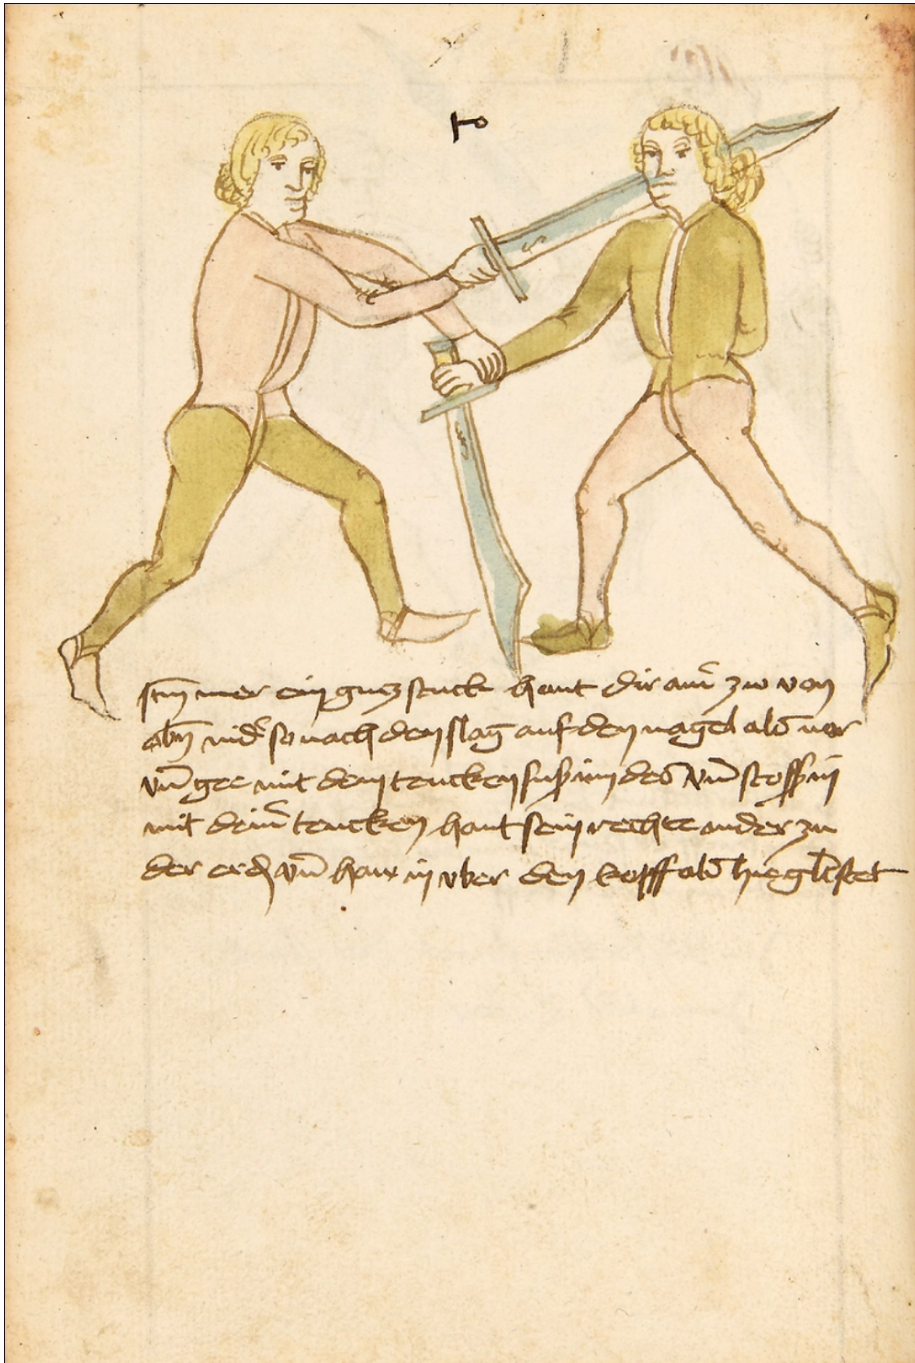 10
Itm mer ein gucz stuck haut dir ainer zw von
obn nider so nach den slag auf den nagel als vor
vnd gee mit dem tencken fuß in des vnd stoß in
mit deiner tencken hant sein rechte ander zu
der erd vnd haw in vber den kopff als hie gler stet